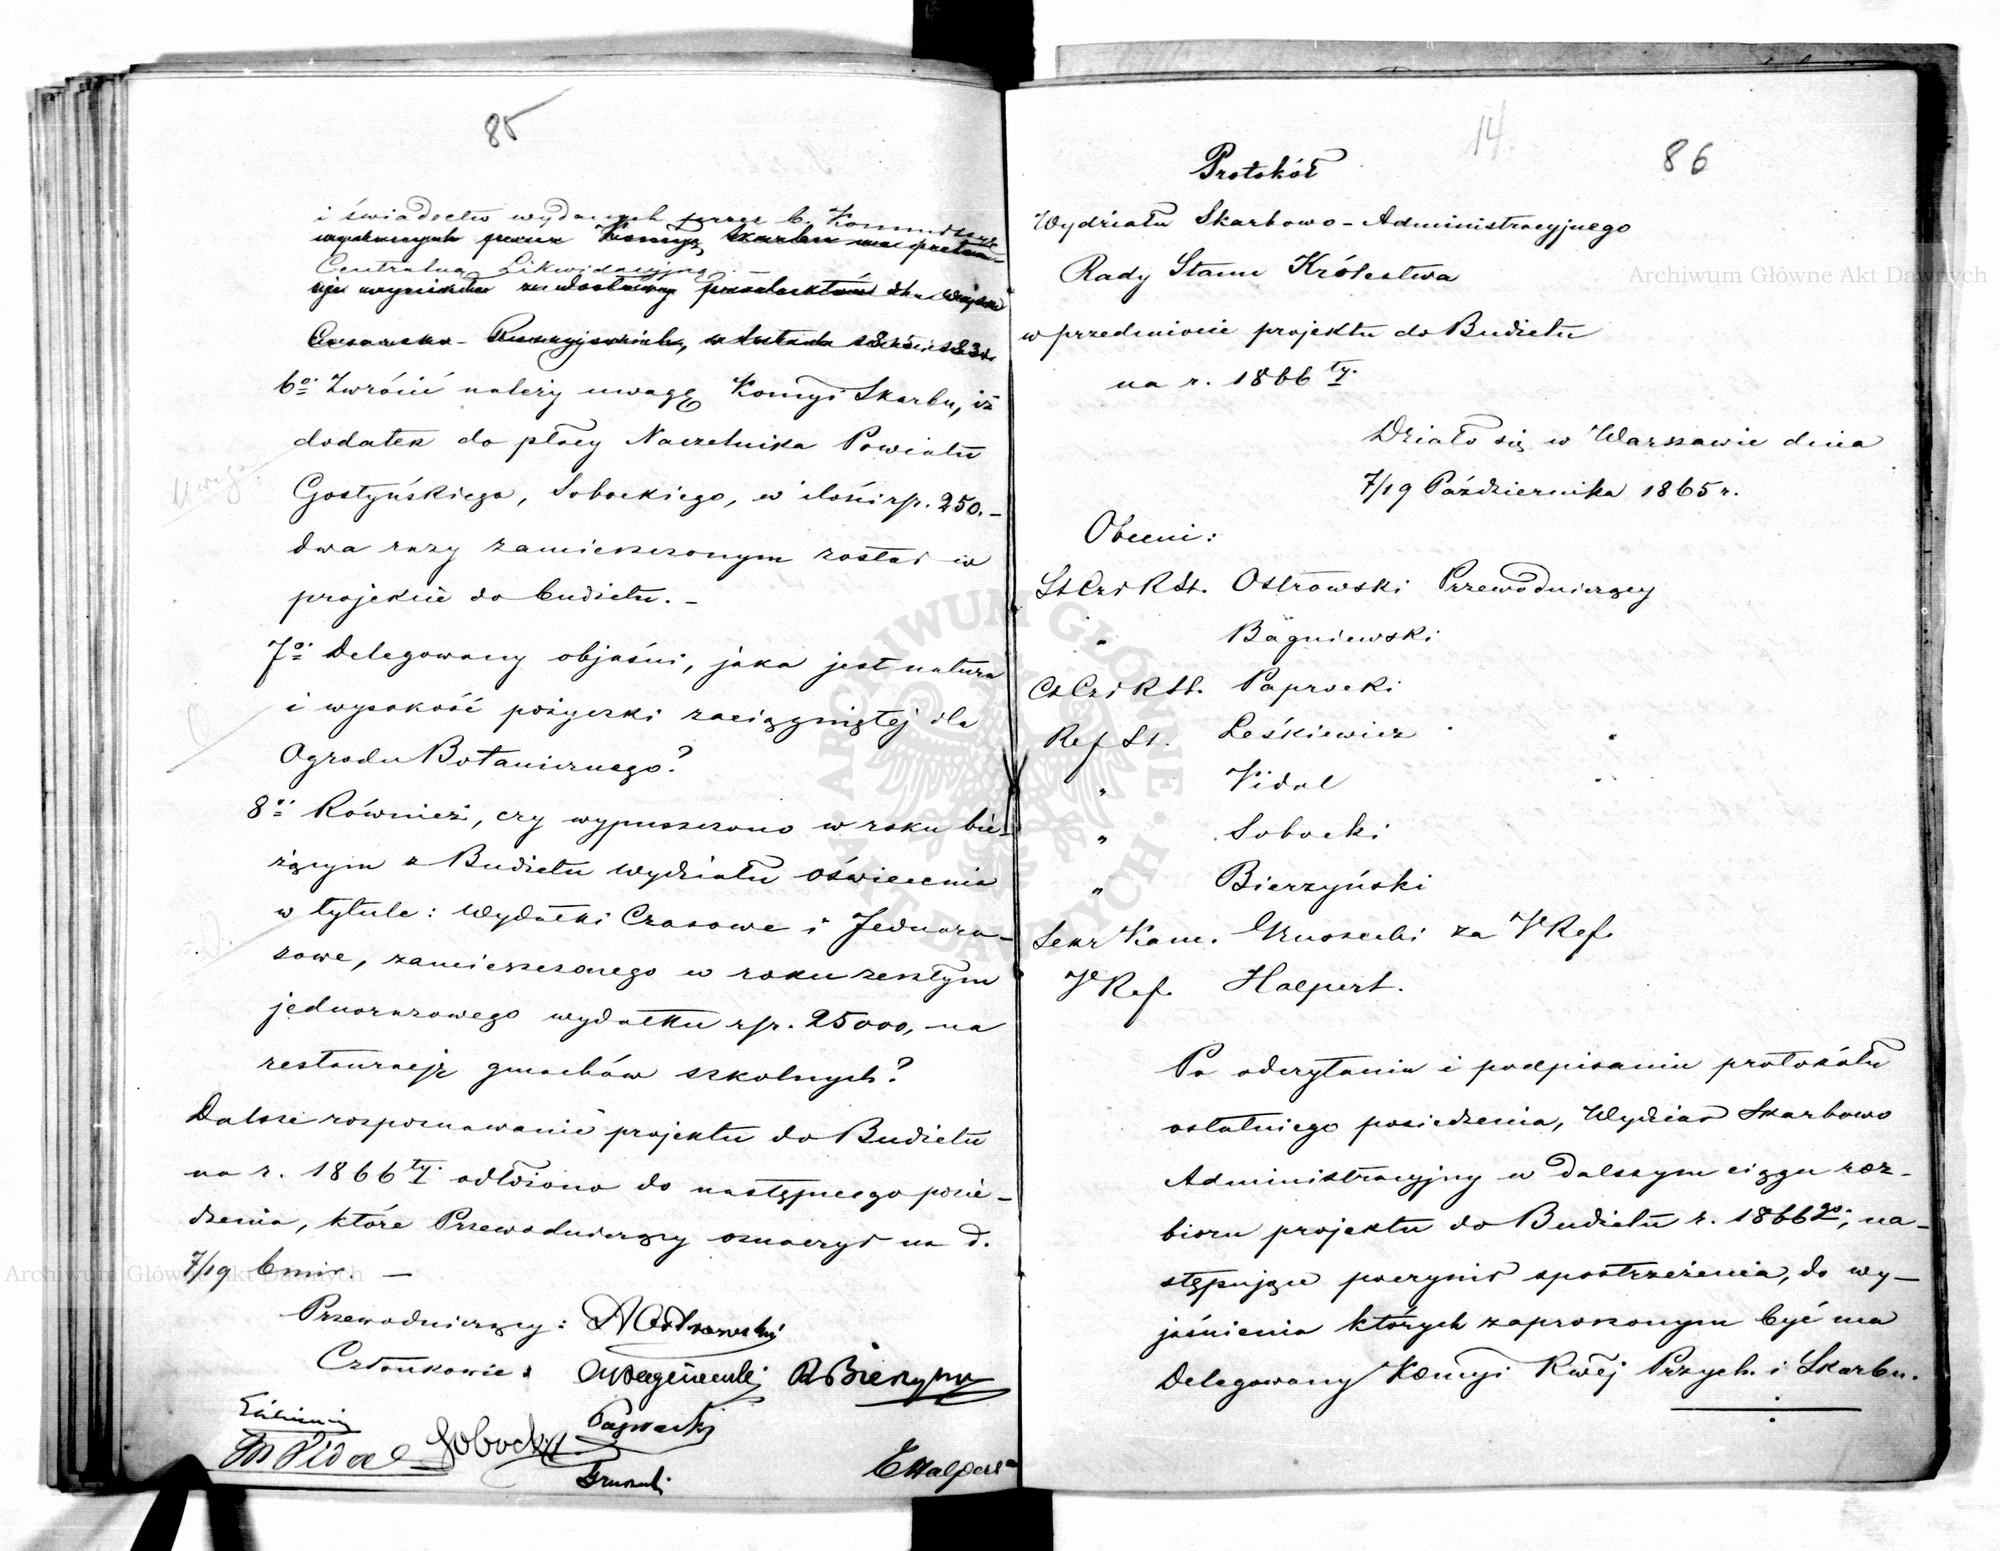 85
i świadectw wydanych przez b. Kommissyę
wydanych przez Komyą Skarbu na preten-
Centralną Likwidacyjną. –
Cesarsko-Rossyjskich, w latach
6o Zwrócić należy uwagę Komyi Skarbu, iż
dodatek do płacy Naczelnika Powiatu
Uwaga
Gostyńskiego, Sobockiego, w ilości rsr. 250. –
dwa razy zamieszczonym został w
projekcie do budżetu. –
7o Delegowany objaśni, jaka jest natura
i wysokość pożyczki zaciągniętej dla
Ogrodu Botanicznego?
8o Również, czy wypuszczono w roku bie-
żącym z Budżetu Wydziału Oświecenia
w tytule: Wydatki Czasowe i Jednora-
zowe, zamieszczonego w roku zeszłym
jednorazowego wydatku rsr. 25000, na
restauracją gmachów szkolnych?
Dalsze rozpoznawanie projektu do Budżetu
na r. 1866 ty. odłożono do następnego posie-
dzenia, które Przewodniczący oznaczył na d.
7/19 b. mir. –
Przewodniczący: A Ostrowski
Członkowie: Bagniewski R Bierzyń
Paprocki
M Vidal Sobocki
Gruszecki
E Halpert
14.
86
Protokół
Wydziału Skarbowo-Administracyjnego
Rady Stanu Królestwa
w przedmiocie projektu do Budżetu
na r. 1866 ty.
Działo się w Warszawie dnia
7/19 Października 1865 r.
Obecni:
St Czł R St. Ostrowski Przewodniczący
" Bagniewski
Cz Czł R St. Paprocki
Ref St. Leśkiewicz
" Vidal
" Sobocki
" Bierzyński
Sekr Kanc. Gruszecki za V Ref.
V Ref. Halpert.
Po odczytaniu i podpisaniu protokółu
ostatniego posiedzenia, Wydział Skarbowo
Administracyjny w dalszym ciągu roz-
bioru projektu do Budżetu r. 1866 go, na-
stępujące poczynił spostrzeżenia, do wy-
jaśnienia których zaproszonym być ma
Delegowany Komyi Rwéj Przych. i Skarbu.
Archiwum Główne Akt Dawnych
Archiwum Główne Akt Dawnych
ARCHIWUM GŁÓWNE AKT DAWNYCH